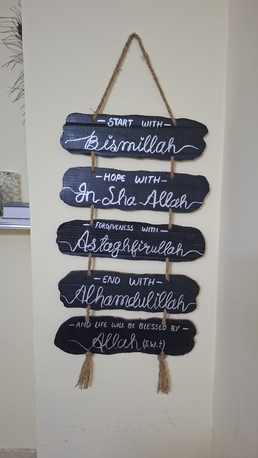 - START WITH -
Bismillah
- HOPE WITH -
In Sha Allah
- FORGIVENESS WITH -
Astaghfirullah
- END WITH -
Alhamdulillah
- AND LIFE WILL BE BLESSED BY -
Allah (s.w.t)